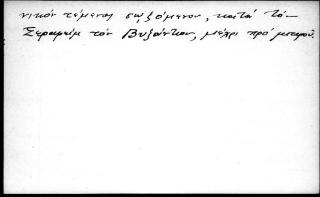 νικόν τέμενος σωζόμενον, κατά τόν
Σεραφείμ τόν Βυζάντιον, μέχρι πρό μικροῦ.